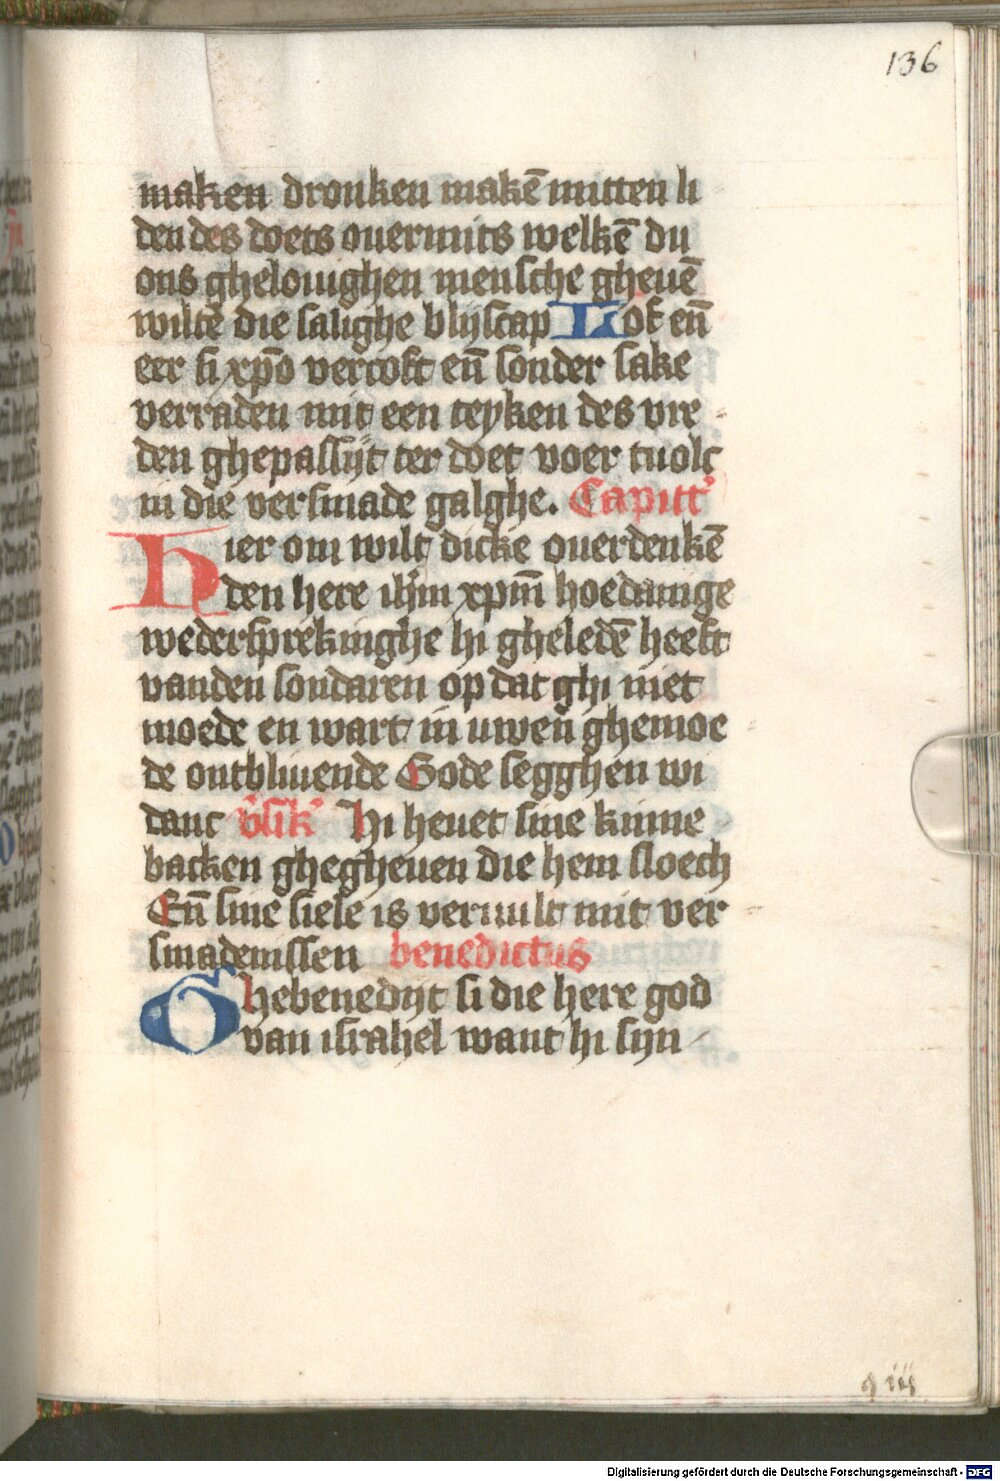 136
maken dronken makē mitten li
den des doets ouermits welkē du
ons ghelouighen mensche gheuē
wilste die salighe blijscap Lof en̄
eer si xp̄o vercoft en̄ sonder sake
verraden mit een teyken des vre
den ghepassijt ter doet voer tuolc
in die versmade galghe. Capitt'
Hier om wilt dicke ouerdenkē
den here ih̄m xp̄m hoedanige
wedersprekinghe hi gheledē heeft
vanden sondaren op dat ghi niet
moede en wart in uwen ghemoe
de ontbliuende Gode segghen wi
danc v̄sik' Hi heuet sine kinne
backen ghegheuen die hem sloech
En̄ sine siele is veruult mit ver
smadenissen benedictus
Ghebenedijt si die here god
van israhel want hi sijn
Digitalisierung gefördert durch die Deutsche Forschungsgemeinschaft - DFG